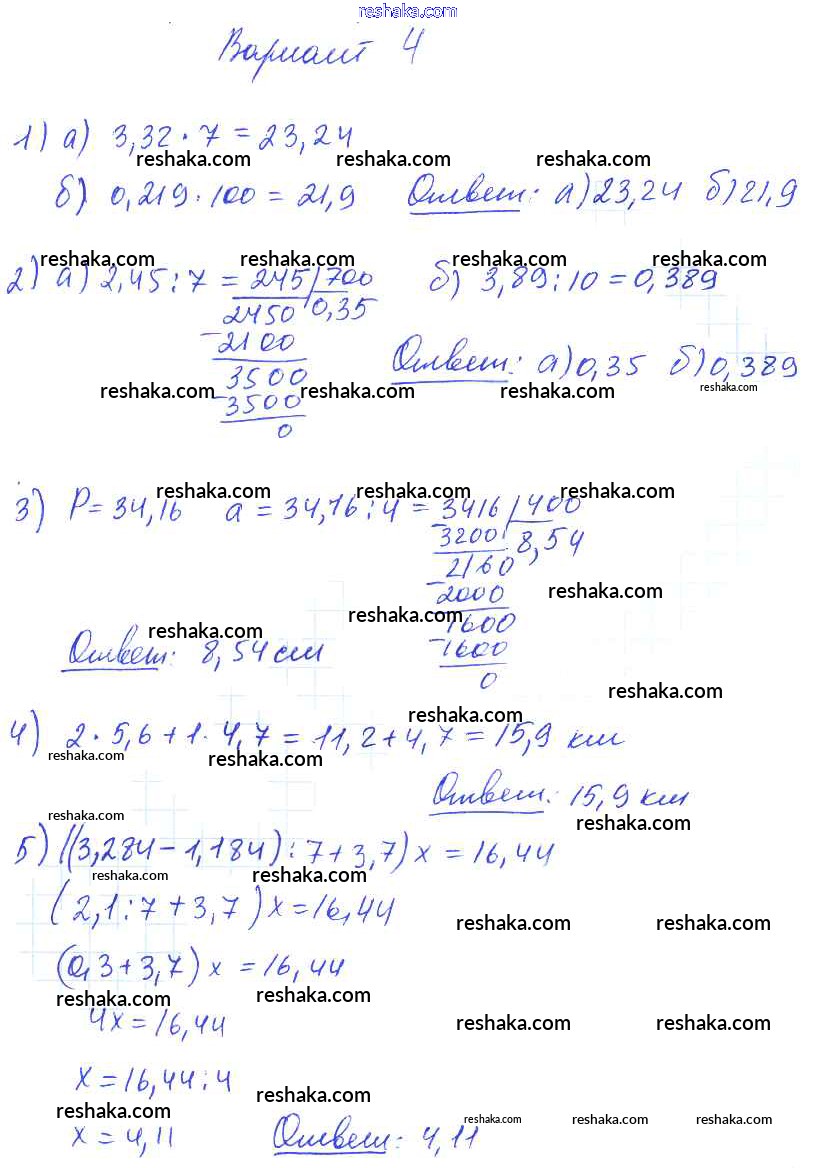 reshaka.com
Вариант 4
1) а) 3,32 · 7 = 23,24
reshaka.com reshaka.com reshaka.com
б) 0,219 · 100 = 21,9 Ответ: а) 23,24 б) 21,9
reshaka.com reshaka.com reshaka.com reshaka.com
2) а) 2,45 : 7 = 245 | 700 б) 3,89 : 10 = 0,389
2450 0,35
- 2100
Ответ: а) 0,35 б) 0,389
3500
reshaka.com reshaka.com reshaka.com reshaka.com
- 3500
0
reshaka.com reshaka.com reshaka.com
3) P = 34,16 a = 34,16 : 4 = 3416 | 400
- 3200 8,54
2160
- 2000 reshaka.com
reshaka.com
1600
reshaka.com
- 1600
Ответ: 8,54 см
0
reshaka.com
reshaka.com
4) 2 · 5,6 + 1 · 4,7 = 11,2 + 4,7 = 15,9 км
reshaka.com reshaka.com
Ответ: 15,9 км
reshaka.com reshaka.com
5) ((3,284 - 1,184) : 7 + 3,7) x = 16,44
reshaka.com reshaka.com
(2,1 : 7 + 3,7) x = 16,44
reshaka.com reshaka.com
(0,3 + 3,7) x = 16,44
reshaka.com reshaka.com
4x = 16,44
reshaka.com reshaka.com
x = 16,44 : 4
reshaka.com reshaka.com
reshaka.com reshaka.com reshaka.com
x = 4,11 Ответ: 4,11